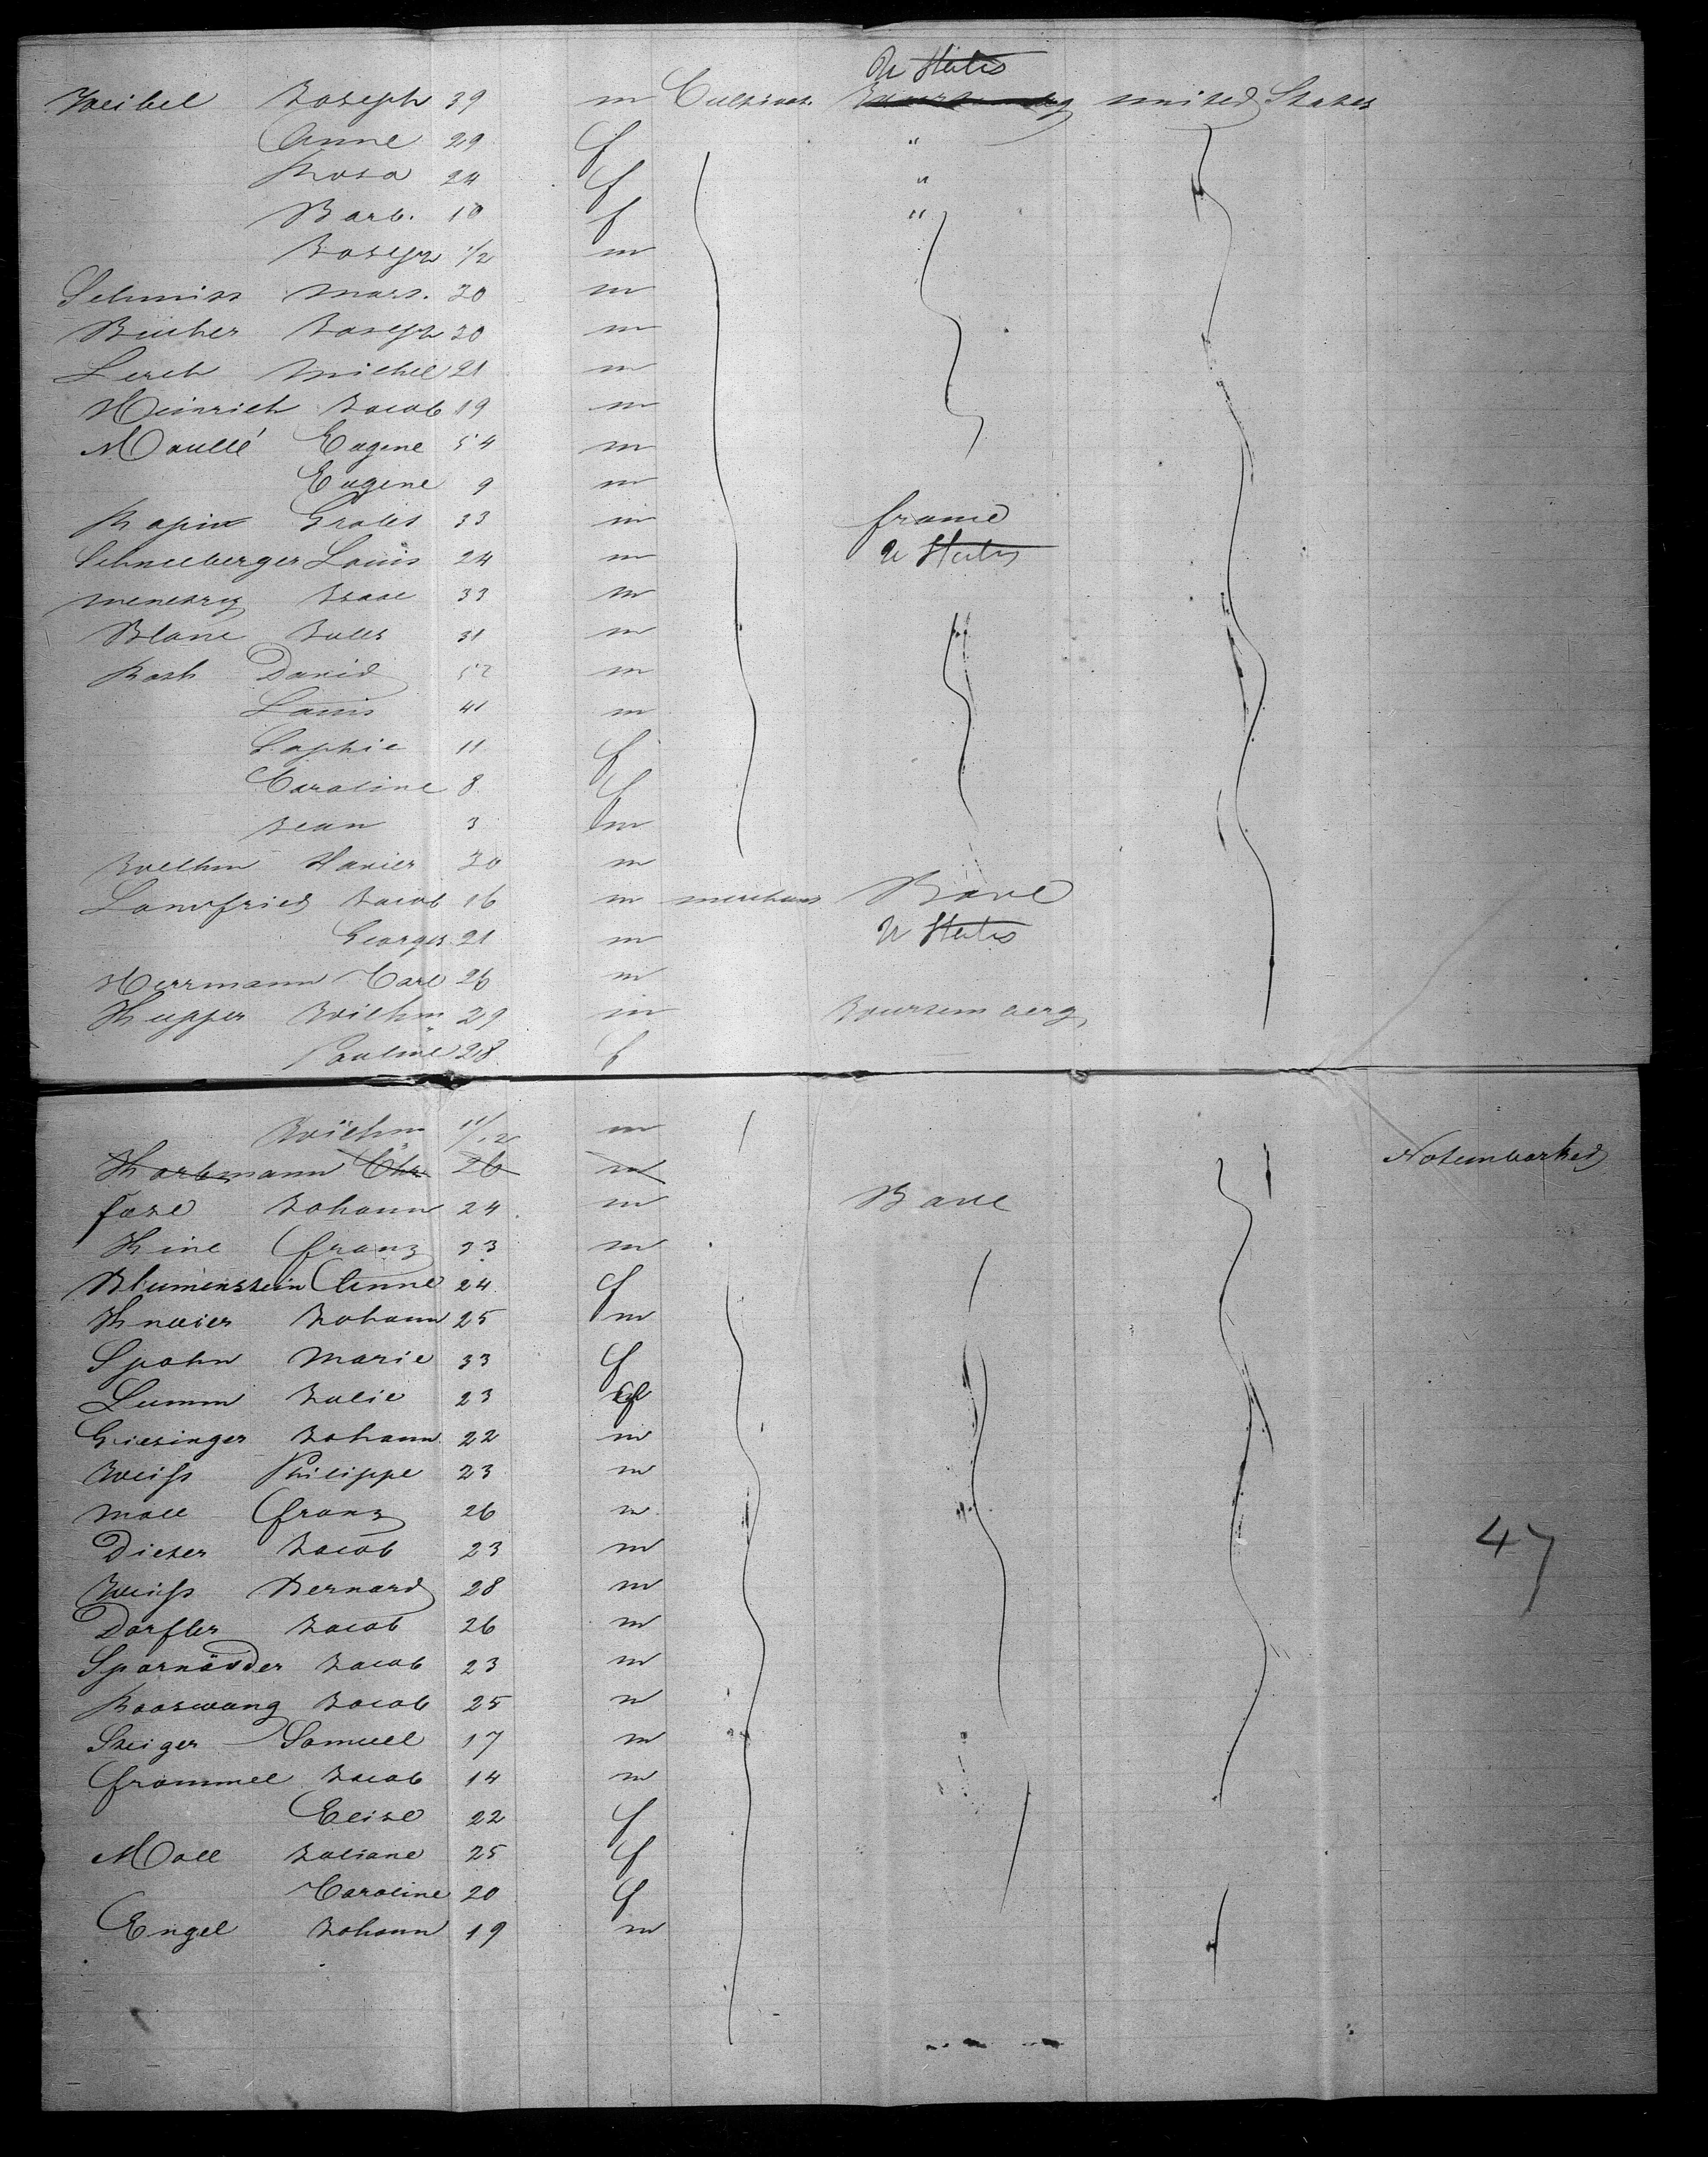 U States
Weibel Joseph 39 m Cultivat. Wurtemberg United States
Anne 29 f "
Rosa 24 f "
Barb. 10 f "
Joseph 1/2 m
Schmitt Mart. 30 m
Bucher Joseph 30 m
Lerch Michel 21 m
Heinrich Jacob 19 m
Moullé Eugene 54 m
Eugene 9 m
Rapin 33 m france
Schneeberger Louis 24 m U States
Menetrey Isaac 33 m
Blanc Jules 31 m
Roth David 52 m
Louis 41 m
Sophie 11 f
Caroline 8 f
Jean 3 m
Wilhm Xavier 30 m
Landfried Jacob 16 m merchant Bade
Georges 21 m U States
Herrmann Carl 26 m
Kupper Wilhm 29 m Wurtemberg
Pauline 28 f
Wilhm 11/12 m
Hartmann Chr. 26 m Not embarked
fase Johann 24 m Bade
Kine franz 33 m
Blumenstein Anne 24 f
Johann 25 m
Spohn Marie 33 f
Lumm Julie 23 f
Giesinger Johann 22 m
Weiss Philippe 23 m
Moll franz 26 m
Dieter Jacob 23 m
Weiss Bernard 28 m
Dorfler Jacob 26 m
Jacob 23 m
Jacob 25 m
Steiger Samuel 17 m
frommel Jacob 14 m
Elise 22 f
Moll Juliane 25 f
Caroline 20 f
Engel Johann 19 m
47